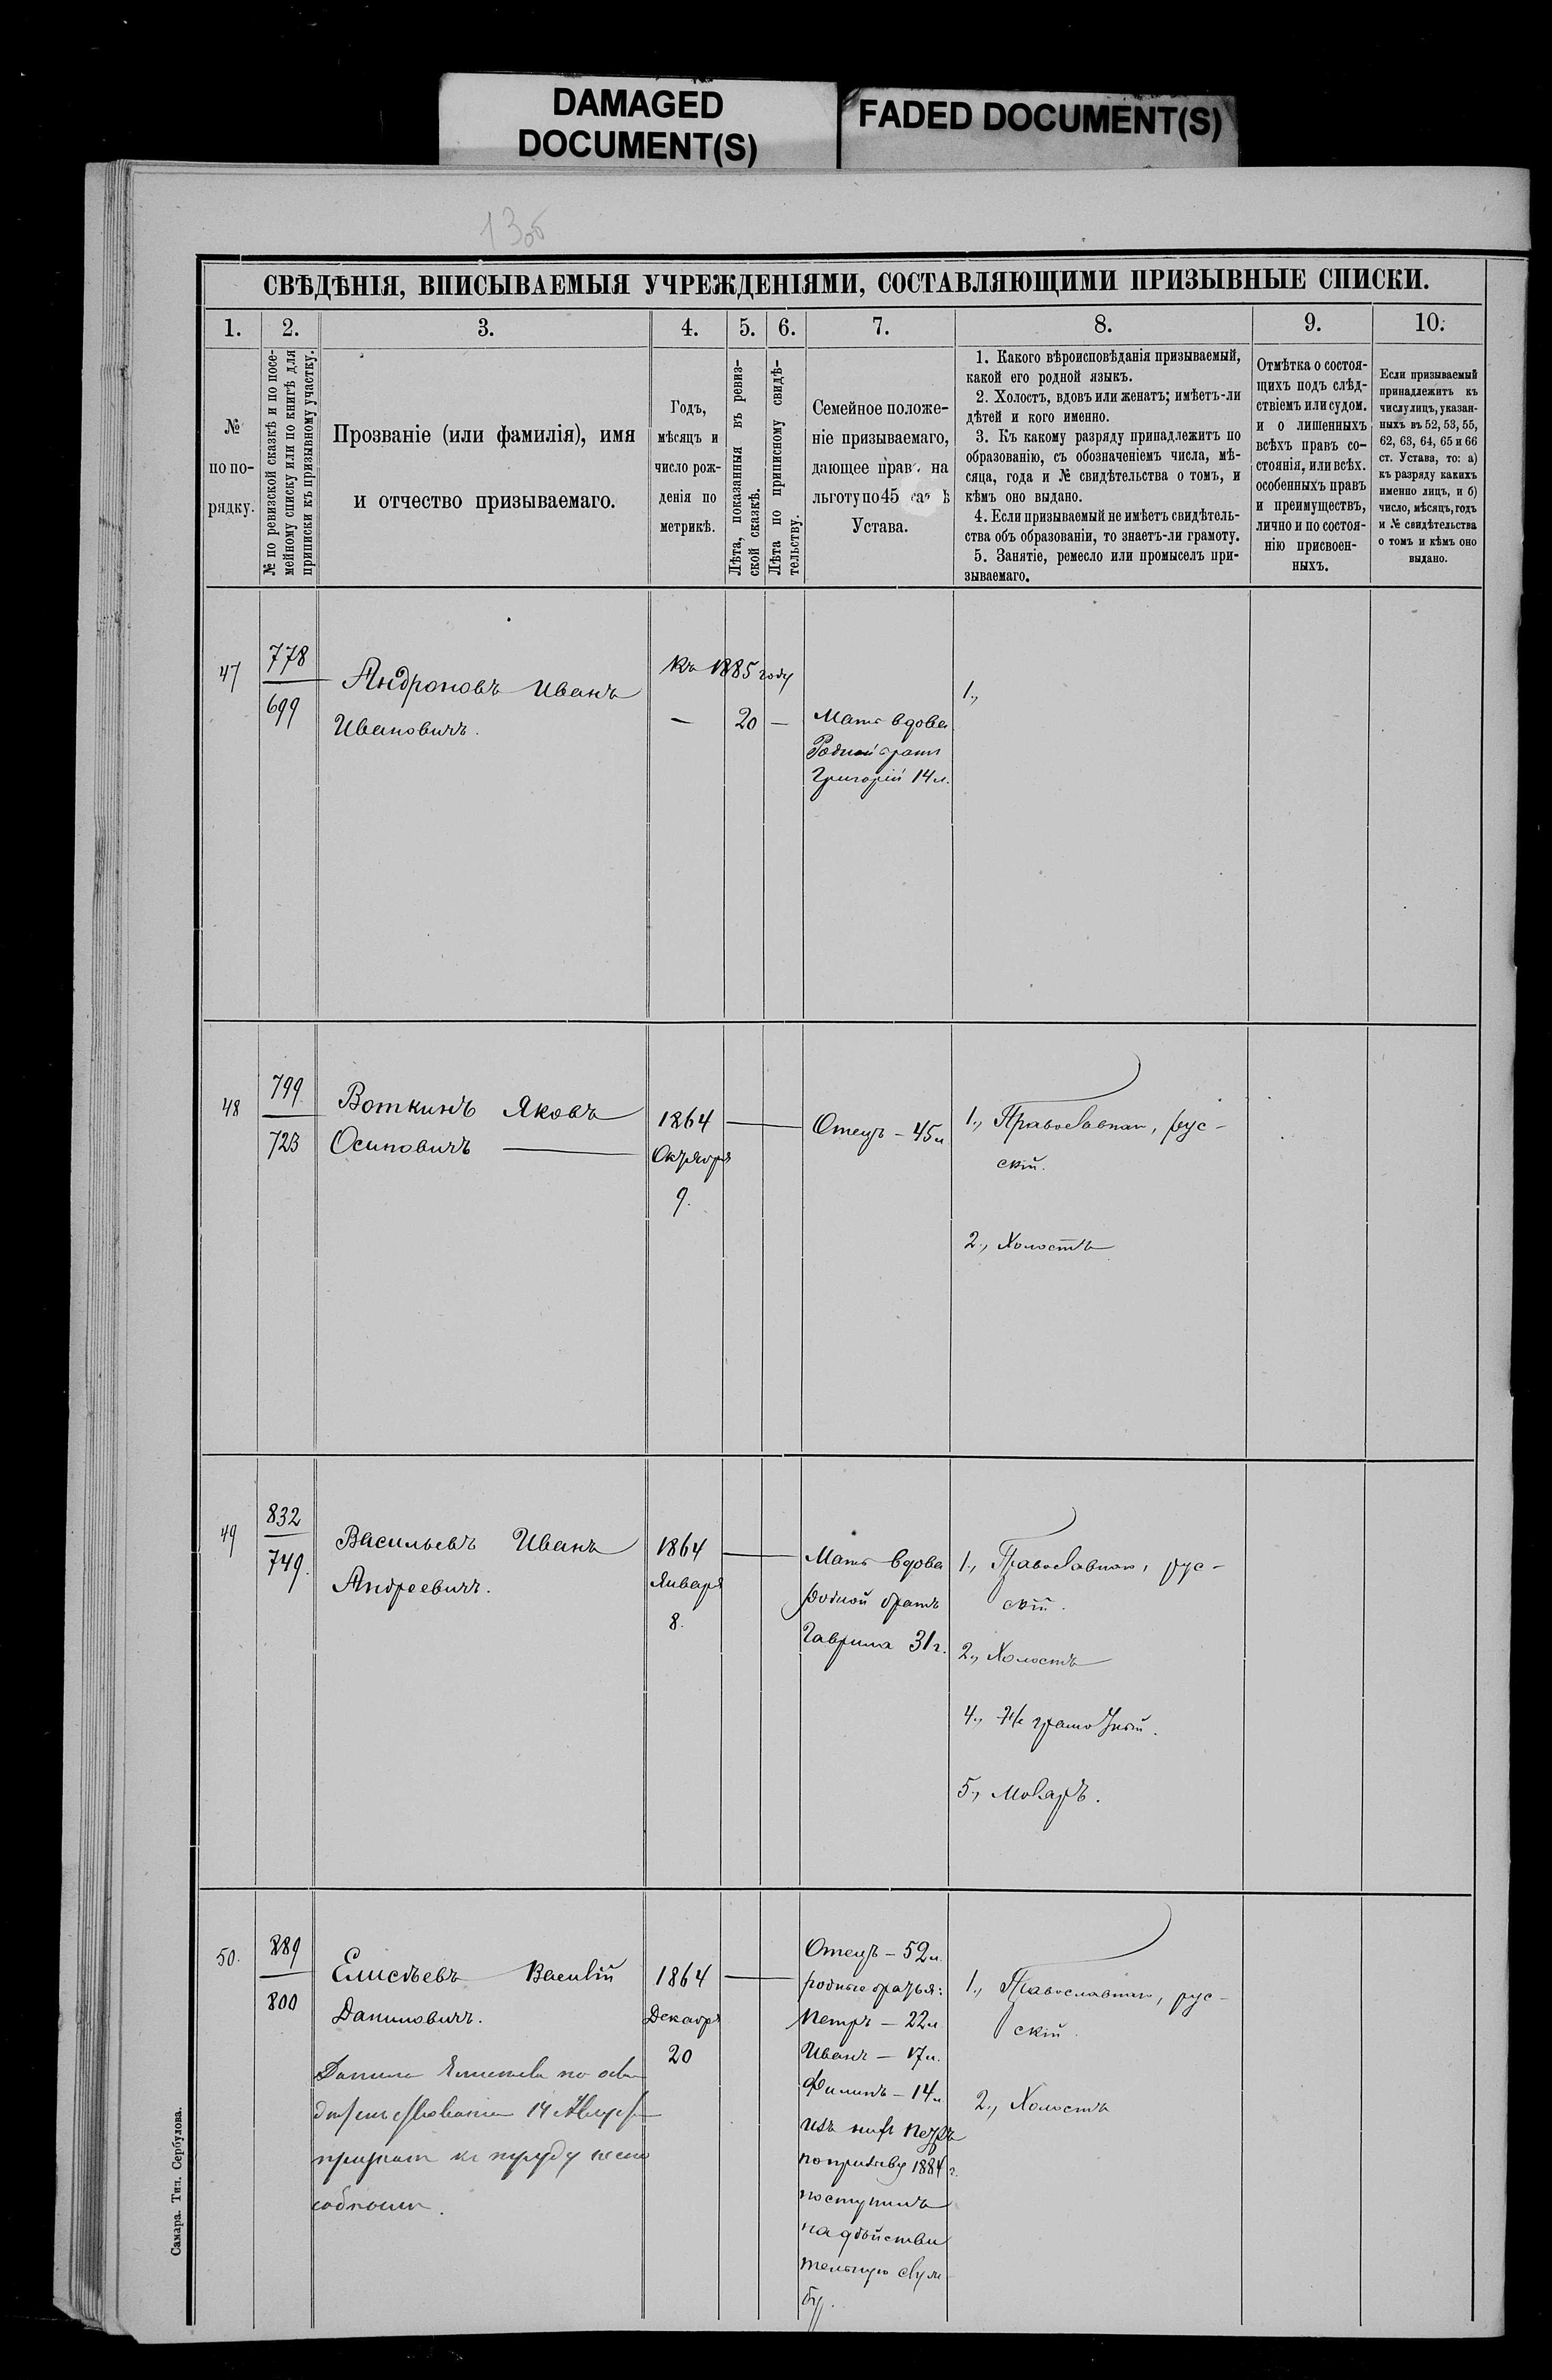 DAMAGED
DOCUMENT(S)
FADED DOCUMENT(S)
13об
СВѢДѢНІЯ, ВПИСЫВАЕМЫЯ УЧРЕЖДЕНІЯМИ, СОСТАВЛЯЮЩИМИ ПРИЗЫВНЫЕ СПИСКИ.
1. 2. 3. 4. 5. 6. 7. 8. 9. 10.
№
по по-
рядку.
№ по ревизской сказкѣ и по посе-
мейному списку или по книгѣ для
приписки къ призывному участку.
Прозваніе (или фамилія), имя
и отчество призываемаго.
Годъ,
мѣсяцъ и
число рож-
денія по
метрикѣ.
Лѣта, показанныя въ ревиз-
ской сказкѣ.
Лѣта по приписному свидѣ-
тельству.
Семейное положе-
ніе призываемаго,
дающее прав на
льготу по 45
Устава.
1. Какого вѣроисповѣданія призываемый,
какой его родной языкъ.
2. Холостъ, вдовъ или женатъ; имѣетъ-ли
дѣтей и кого именно.
3. Къ какому разряду принадлежитъ по
образованію, съ обозначеніемъ числа, мѣ-
сяца, года и № свидѣтельства о томъ, и
кѣмъ оно выдано.
4. Если призываемый не имѣетъ свидѣтель-
ства объ образованіи, то знаетъ-ли грамоту.
5. Занятіе, ремесло или промыселъ при-
зываемаго.
Отмѣтка о состоя-
щихъ подъ слѣд-
ствіемъ или судом.
и о лишенныхъ
всѣхъ правъ со-
стоянія, или всѣх.
особенныхъ правъ
и преимуществъ,
лично и по состоя-
нію присвоен-
ныхъ.
Если призываемый
принадлежитъ къ
числу лицъ, указан-
ныхъ въ 52, 53, 55,
62, 63, 64, 65 и 66
ст. Устава, то: а)
къ разряду какихъ
именно лицъ, и б)
число, мѣсяцъ, годъ
и № свидѣтельства
о томъ и кѣмъ оно
выдано.
47
778
699
Андроновъ Иванъ
Ивановичъ.
Къ 1885 году
— 20 —
Мать вдова
Родной братъ
Григорій 14 л.
1.,
48
799
723
Воткинъ Яковъ
Осиповичъ
1864
Октября
9.
Отецъ – 45 л
1., Православнаго, рус-
скій.
2., Холостъ
49
832
749.
Васильевъ Иванъ
Андреевичъ.
1864
Января
8.
Мать вдова
родной братъ
Гаврила 31 г.
1., Православнаго, рус-
скій.
2., Холостъ
4., Не грамотный.
5., Маляръ.
50.
889
800
Елисѣевъ Василій
Даниловичъ.
1864
Декабря
20
Данила Елисѣевъ по осви
дѣтельствованію 14 Августа
признанъ къ труду неспо
собнымъ.
Отецъ – 52 л.
родные братья:
Петръ – 22 л
Иванъ – 17 л.
Филипъ – 14 л
изъ нихъ Петръ
по призыву 1884 г.
поступилъ
на дѣйстви
тельную служ
бу.
1., Православнаго, рус-
скій.
2., Холостъ
Самара. Тип. Сербулова.